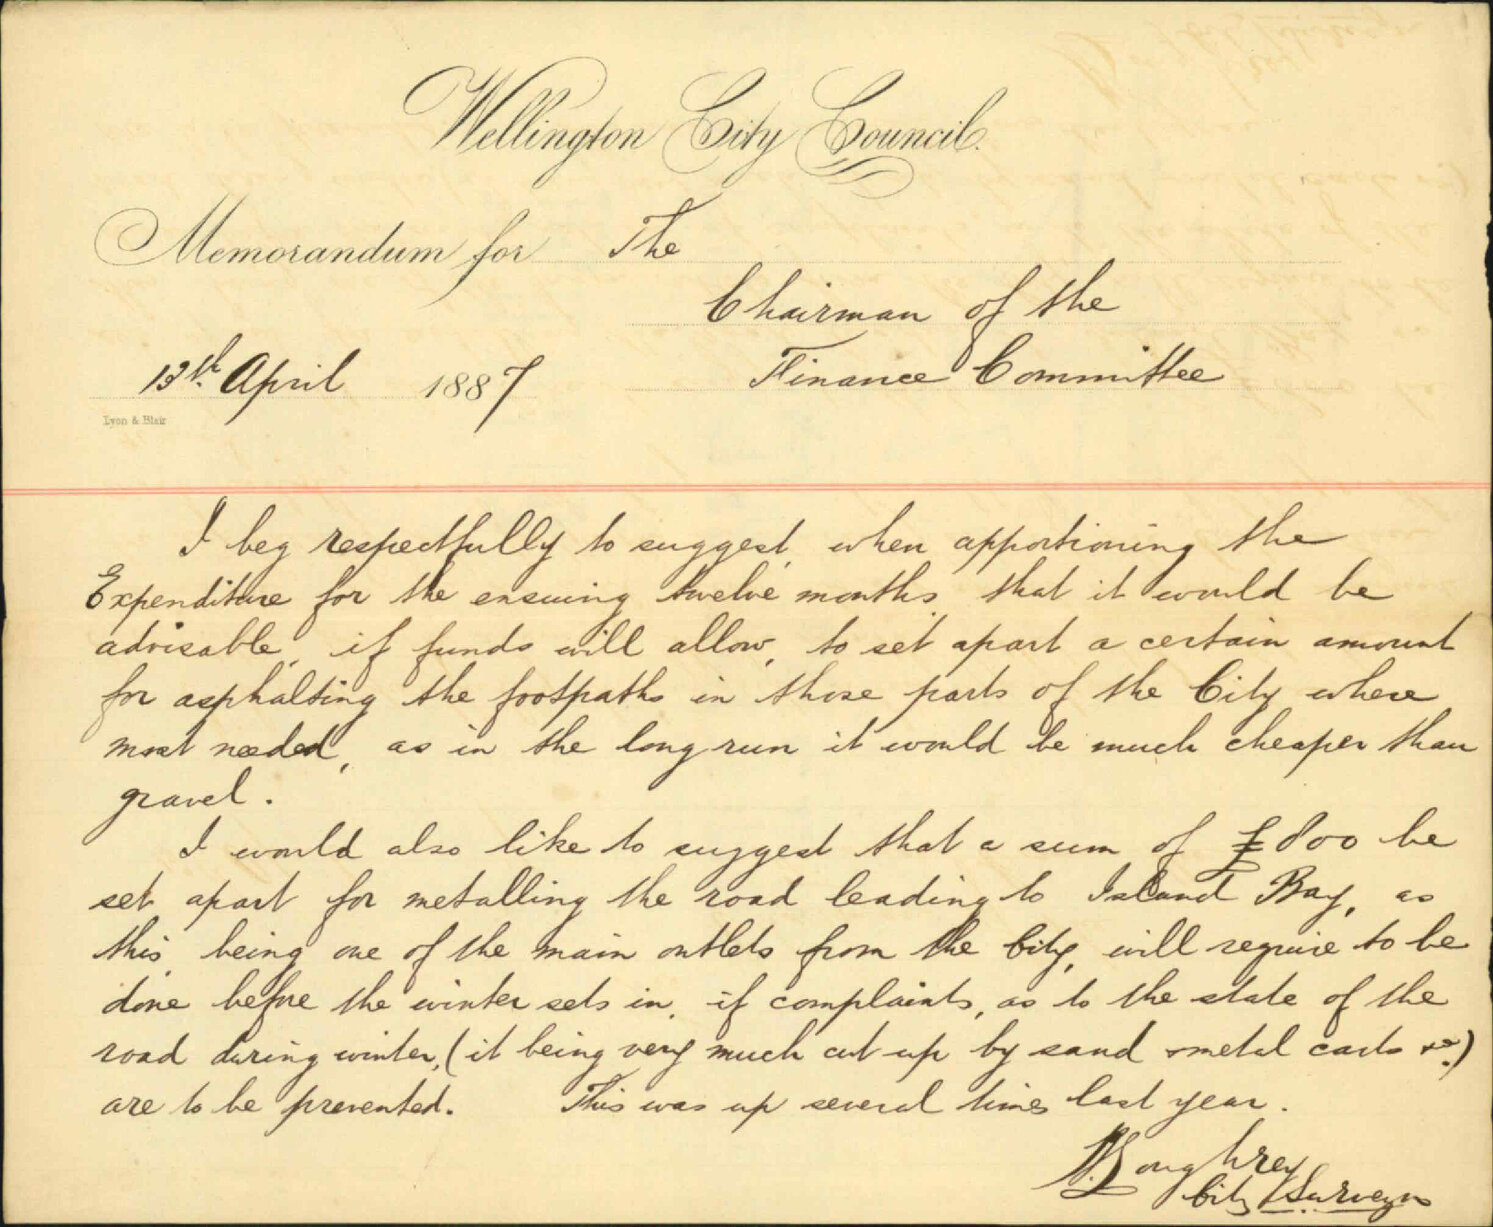 Wellington City Council.
Memorandum for The
Chairman of the
13th. April 1887 Finance Committee
Lyon & Blair
I beg respectfully to suggest, when apportioning the
Expenditure for the ensuing twelve months, that it would be
advisable, if funds will allow, to set apart a certain amount
for asphalting the footpaths in those parts of the City where
most needed, as in the long run it would be much cheaper than
gravel.
I would also like to suggest that a sum of £800 be
set apart for metalling the road leading to Island Bay, as
this, being one of the main outlets from the City, will require to be
done before the winter sets in, if complaints, as to the state of the
road during winter, (it being very much cut up by sand & metal carts &c.)
are to be prevented. This was up several times last year.
Loughrey
City Surveyor